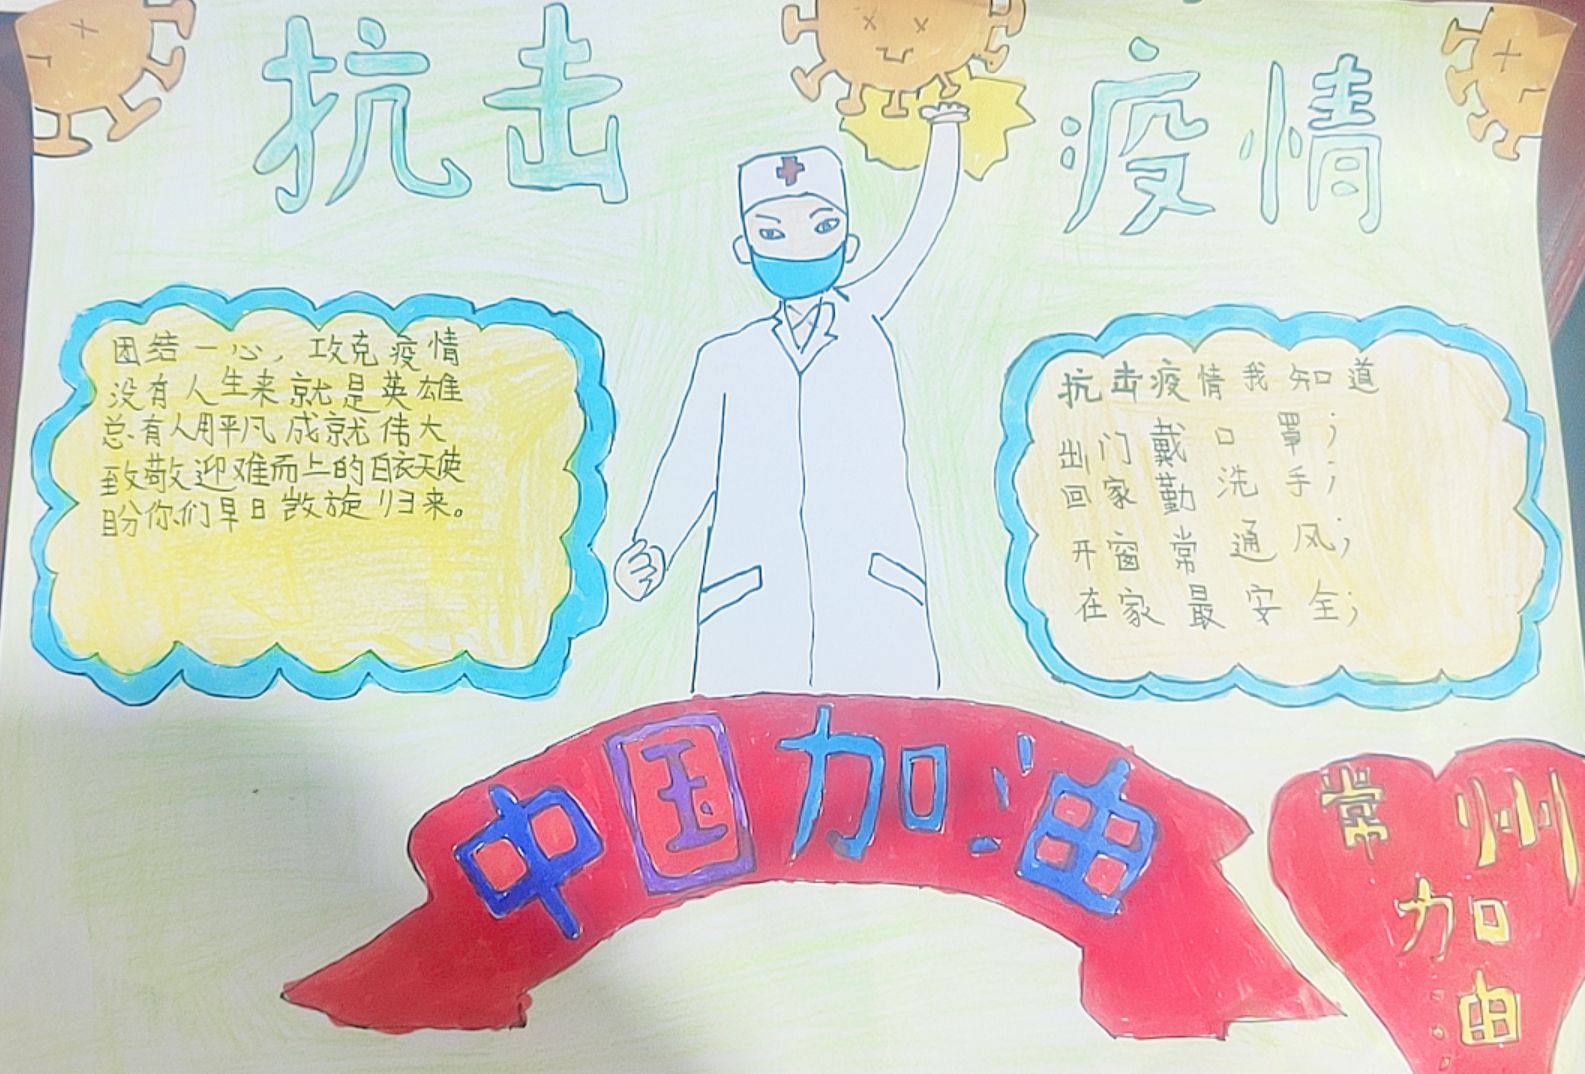 抗击 疫情
团结一心，攻克疫情
没有人生来就是英雄
总有人用平凡成就伟大
致敬迎难而上的白衣天使
盼你们早日凯旋归来。
抗击疫情我知道
出门戴口罩；
回家勤洗手；
开窗常通风；
在家最安全；
中国加油
常州
加油